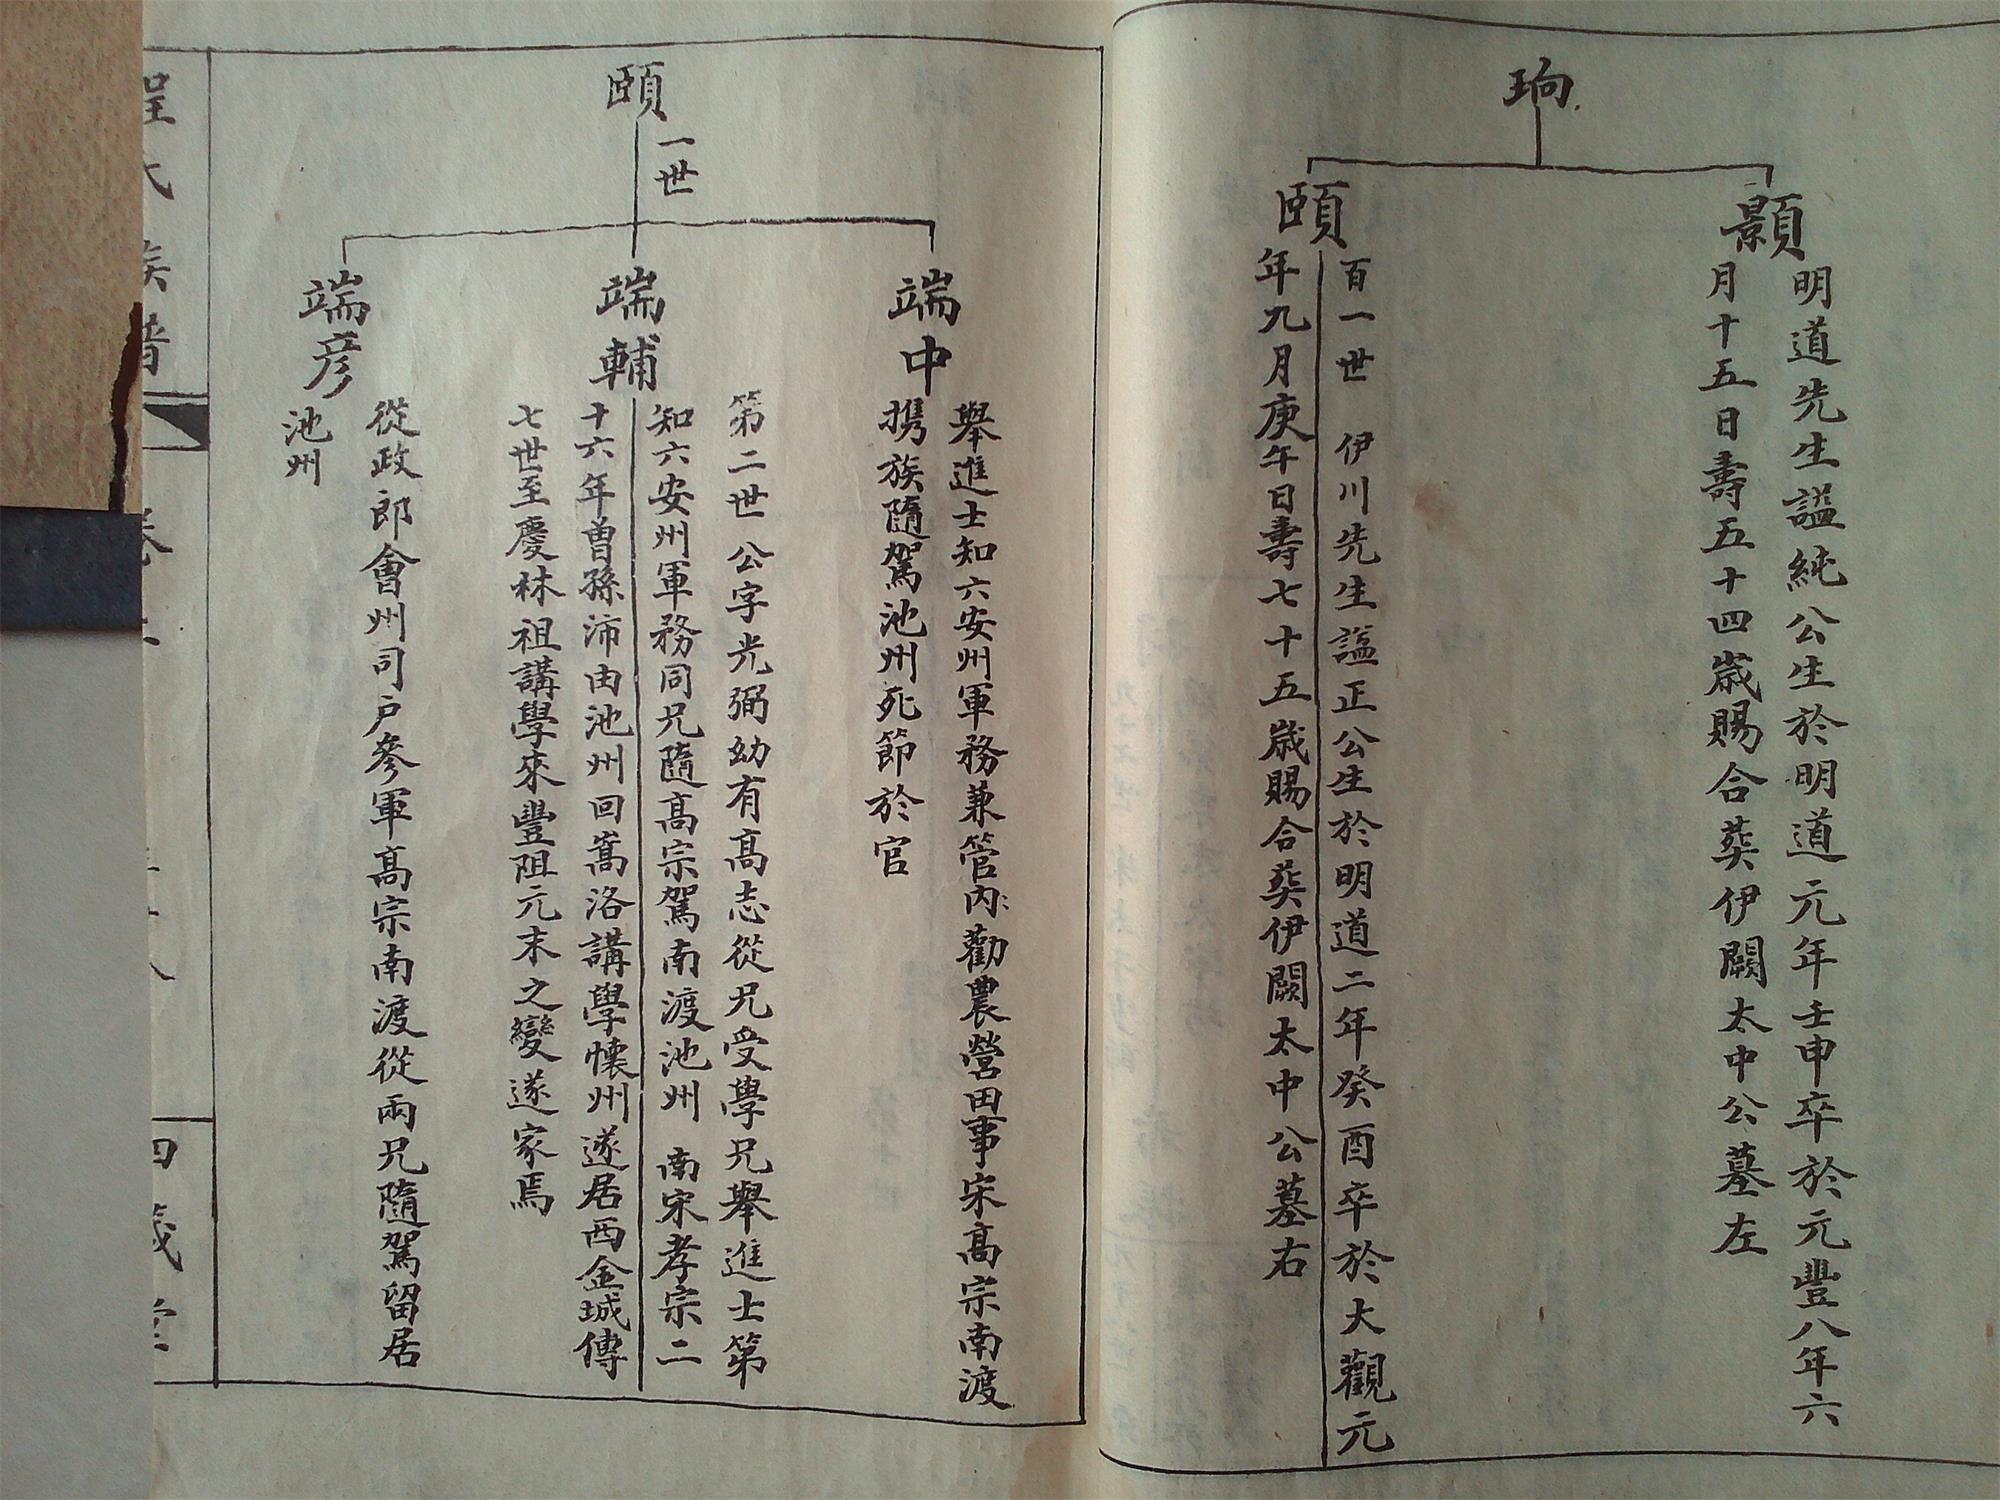 珦
顥
明道先生謚純公生於明道元年壬申卒於元豐八年六
月十五日壽五十四歲賜合葬伊闕太中公墓左
頤
百一世 伊川先生謚正公生於明道二年癸酉卒於大觀元
年九月庚午日壽七十五歲賜合葬伊闕太中公墓右
頤
一世
端中
舉進士知六安州軍務兼管內勸農營田事宋高宗南渡
携族隨駕池州死節於官
端輔
第二世公字光弼幼有高志從兄受學兄舉進士第
知六安州軍務同兄隨高宗駕南渡池州 南宋孝宗二
十六年曾孫沛由池州回嵩洛講學懷州遂居西金城傳
七世至慶林祖講學來豐阻元末之變遂家焉
端彥
從政郎會州司戶參軍高宗南渡從兩兄隨駕留居
池州
程氏族譜